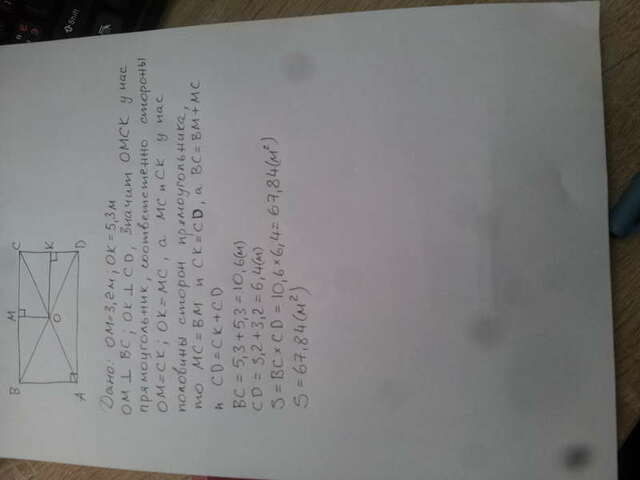 B M C
O K
A D
Дано: OM=3,2м; OK=5,3м
OM ⊥ BC; OK ⊥ CD, значит OMCK у нас
прямоугольник, соответственно стороны
OM=CK; OK=MC, а MC и CK у нас
половины сторон прямоугольника,
то MC=BM и CK=CD, а BC=BM+MC
и CD=CK+CD
BC=5,3+5,3=10,6(м)
CD=3,2+3,2=6,4(м)
S=BC×CD=10,6×6,4=67,84(м²)
S=67,84(м²)
Shift